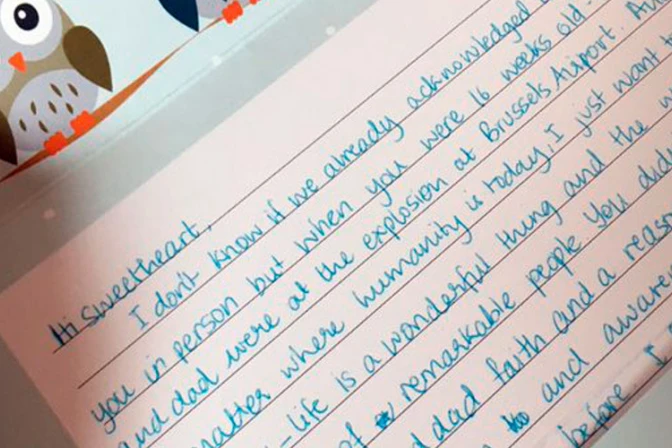 Hi Sweetheart,
I don't know if we already acknowledged
you in person but when you were 16 weeks old -
and dad were at the explosion at Brussels Airport.
matter where humanity is today, I just want
- life is a wonderful thing and the
of remarkable people you
dad faith and a reas
and aware
before.